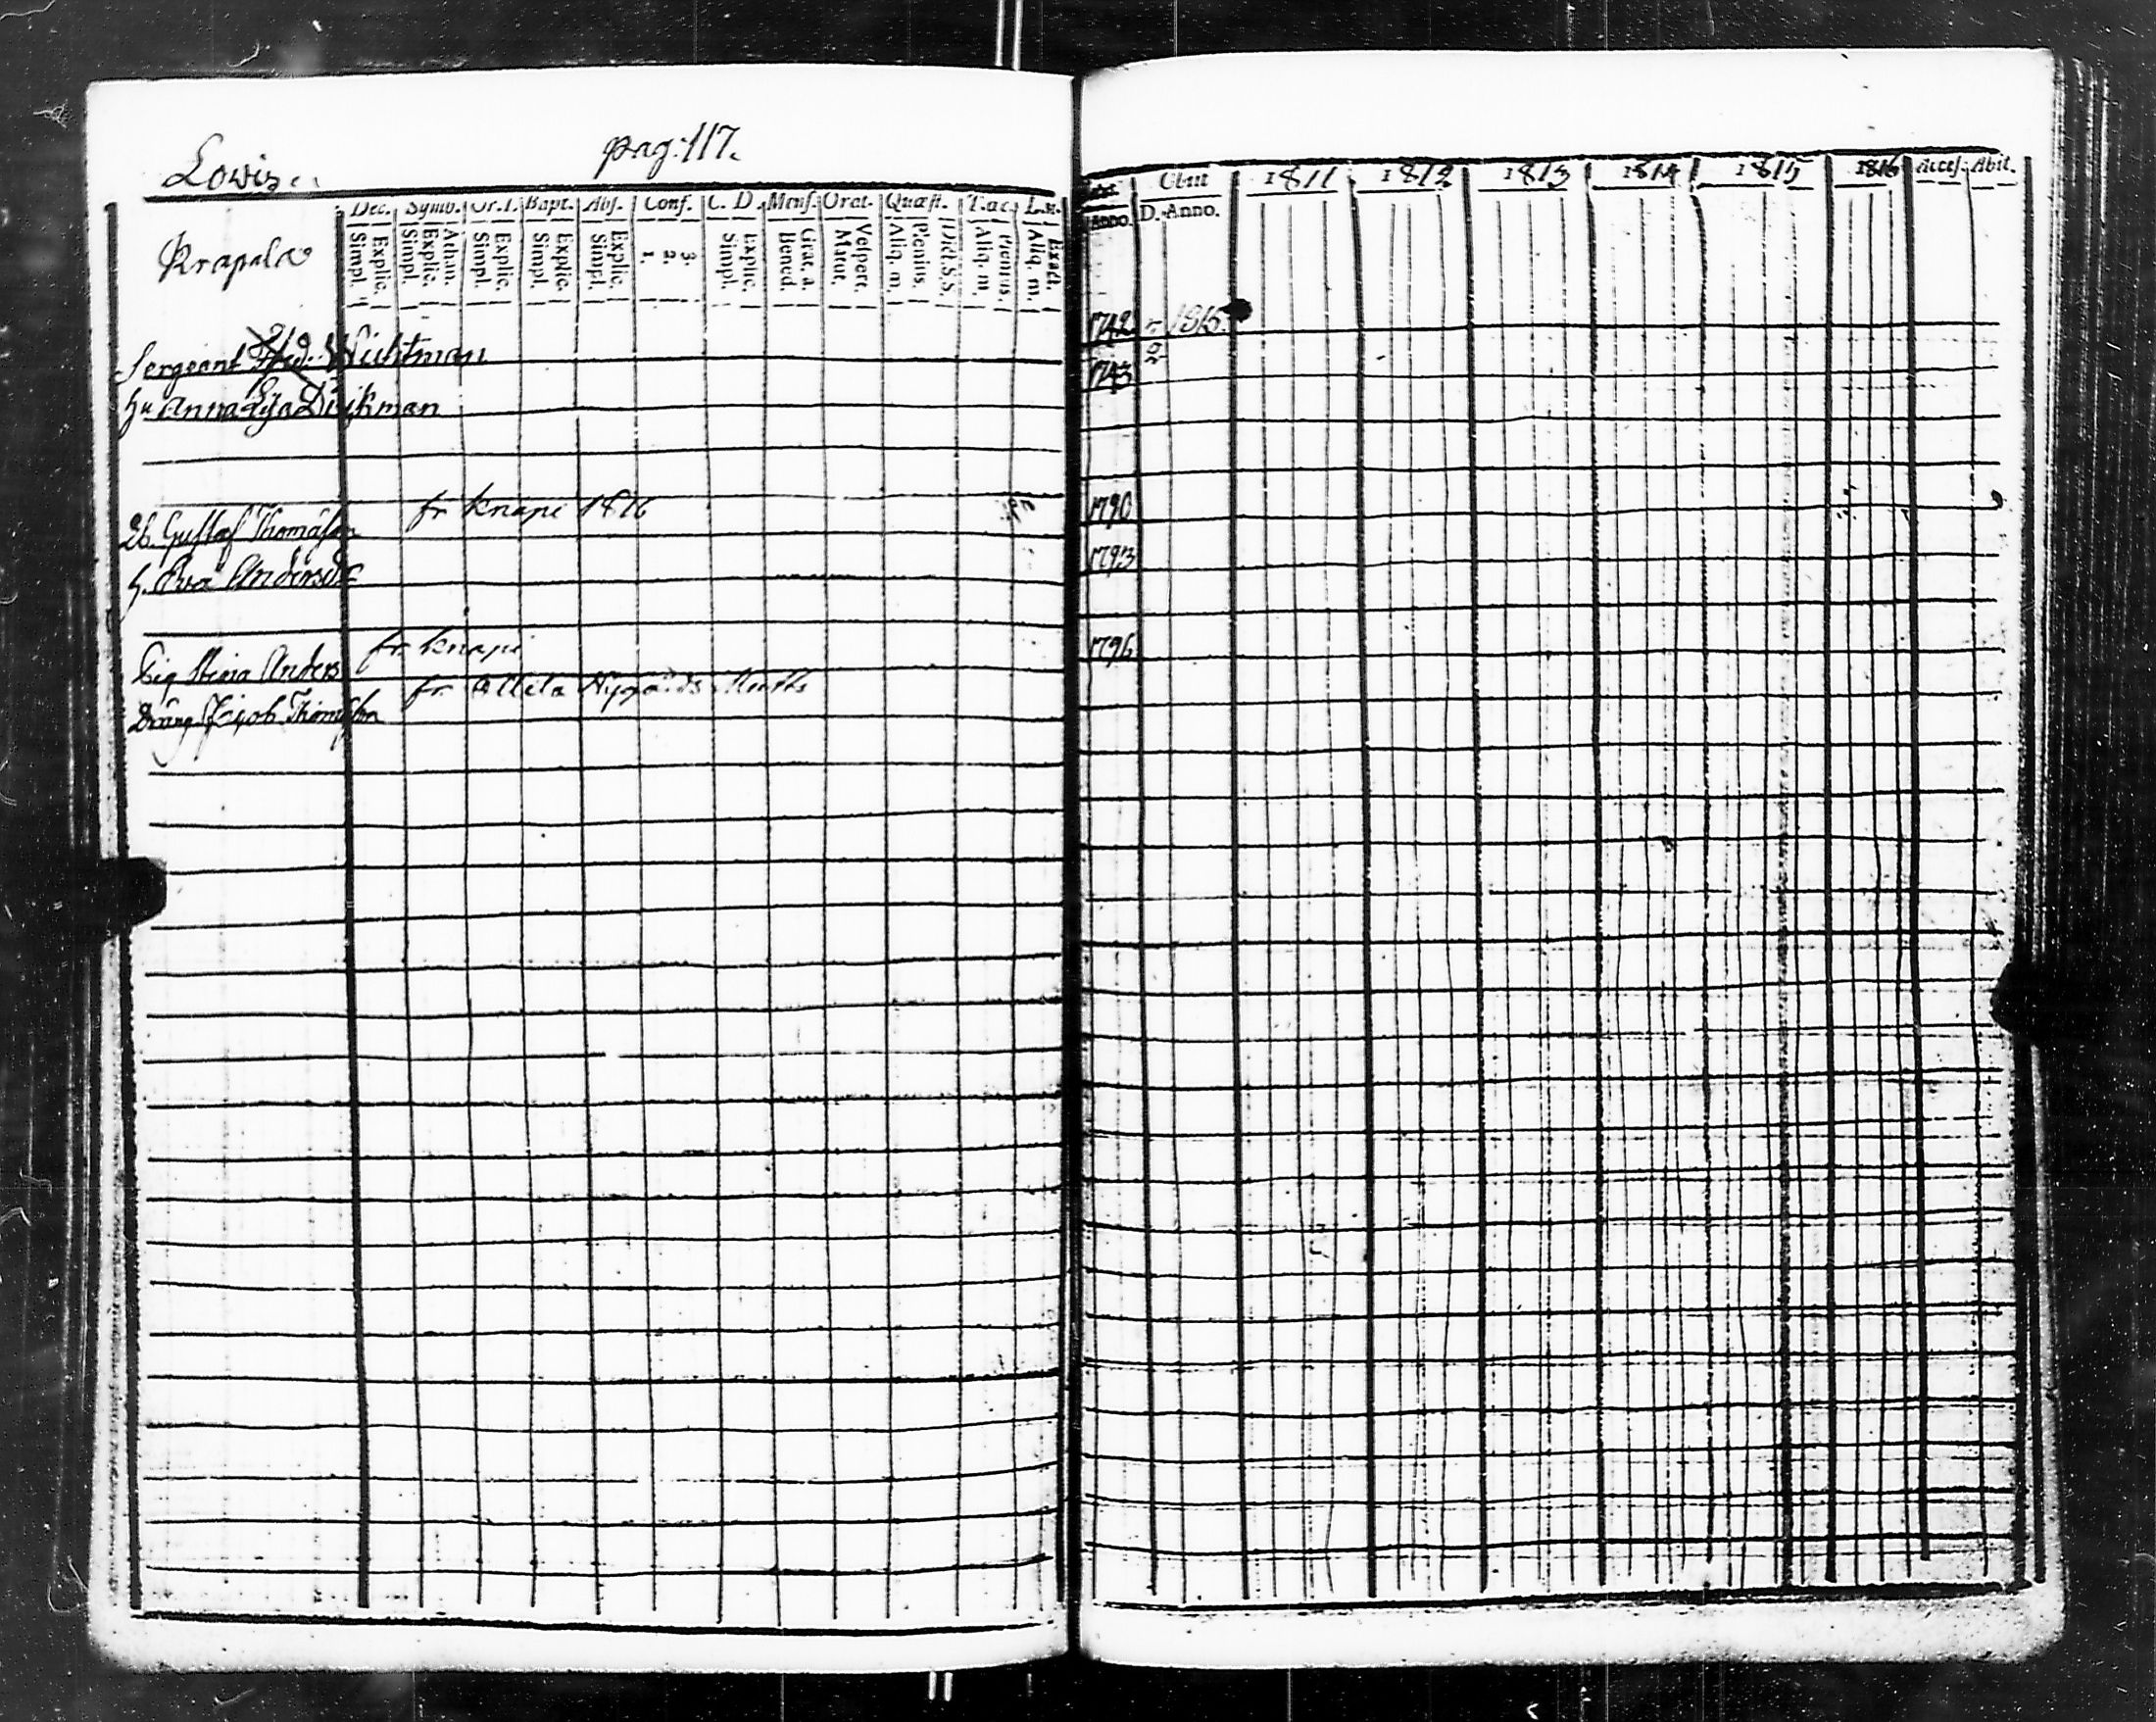 pag. 117.
Lowis
Krapala
Dec. Symb. Or. D. Bapt. Abs. Conf. C. D. Mens. Orat. Quæst. T. œc.
Simpl. Explic. Simpl. Explic. Athan. Simpl. Explic. Simpl. Explic. Simpl. Explic. 1. 2. 3. Simpl. Explic. Bened. Grat. a. Matut. Vespert. Aliq. m. Plenius. Dict. S.S. Aliq. m. Plenius. Aliq. m. Exact.
Sergeant Wichtman
Anna Dijkman
Gustaf Thomasson fr Knapi 1816
h. Eva Andersdr
Pig Stina Anders fr Knapi
Dräng Jacob Thomasson fr
Obiit 1811 1812 1813 1814 1815 1816 Acces. Abit.
Anno. D. Anno.
1742 1815.
1743
1790
1793
1796